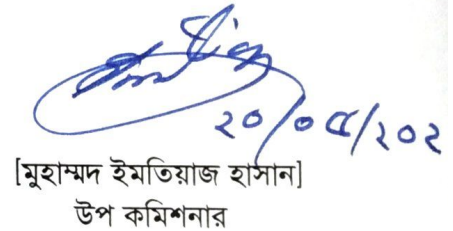 ২০/০৫/২০২
[মুহাম্মদ ইমতিয়াজ হাসান]
উপ কমিশনার